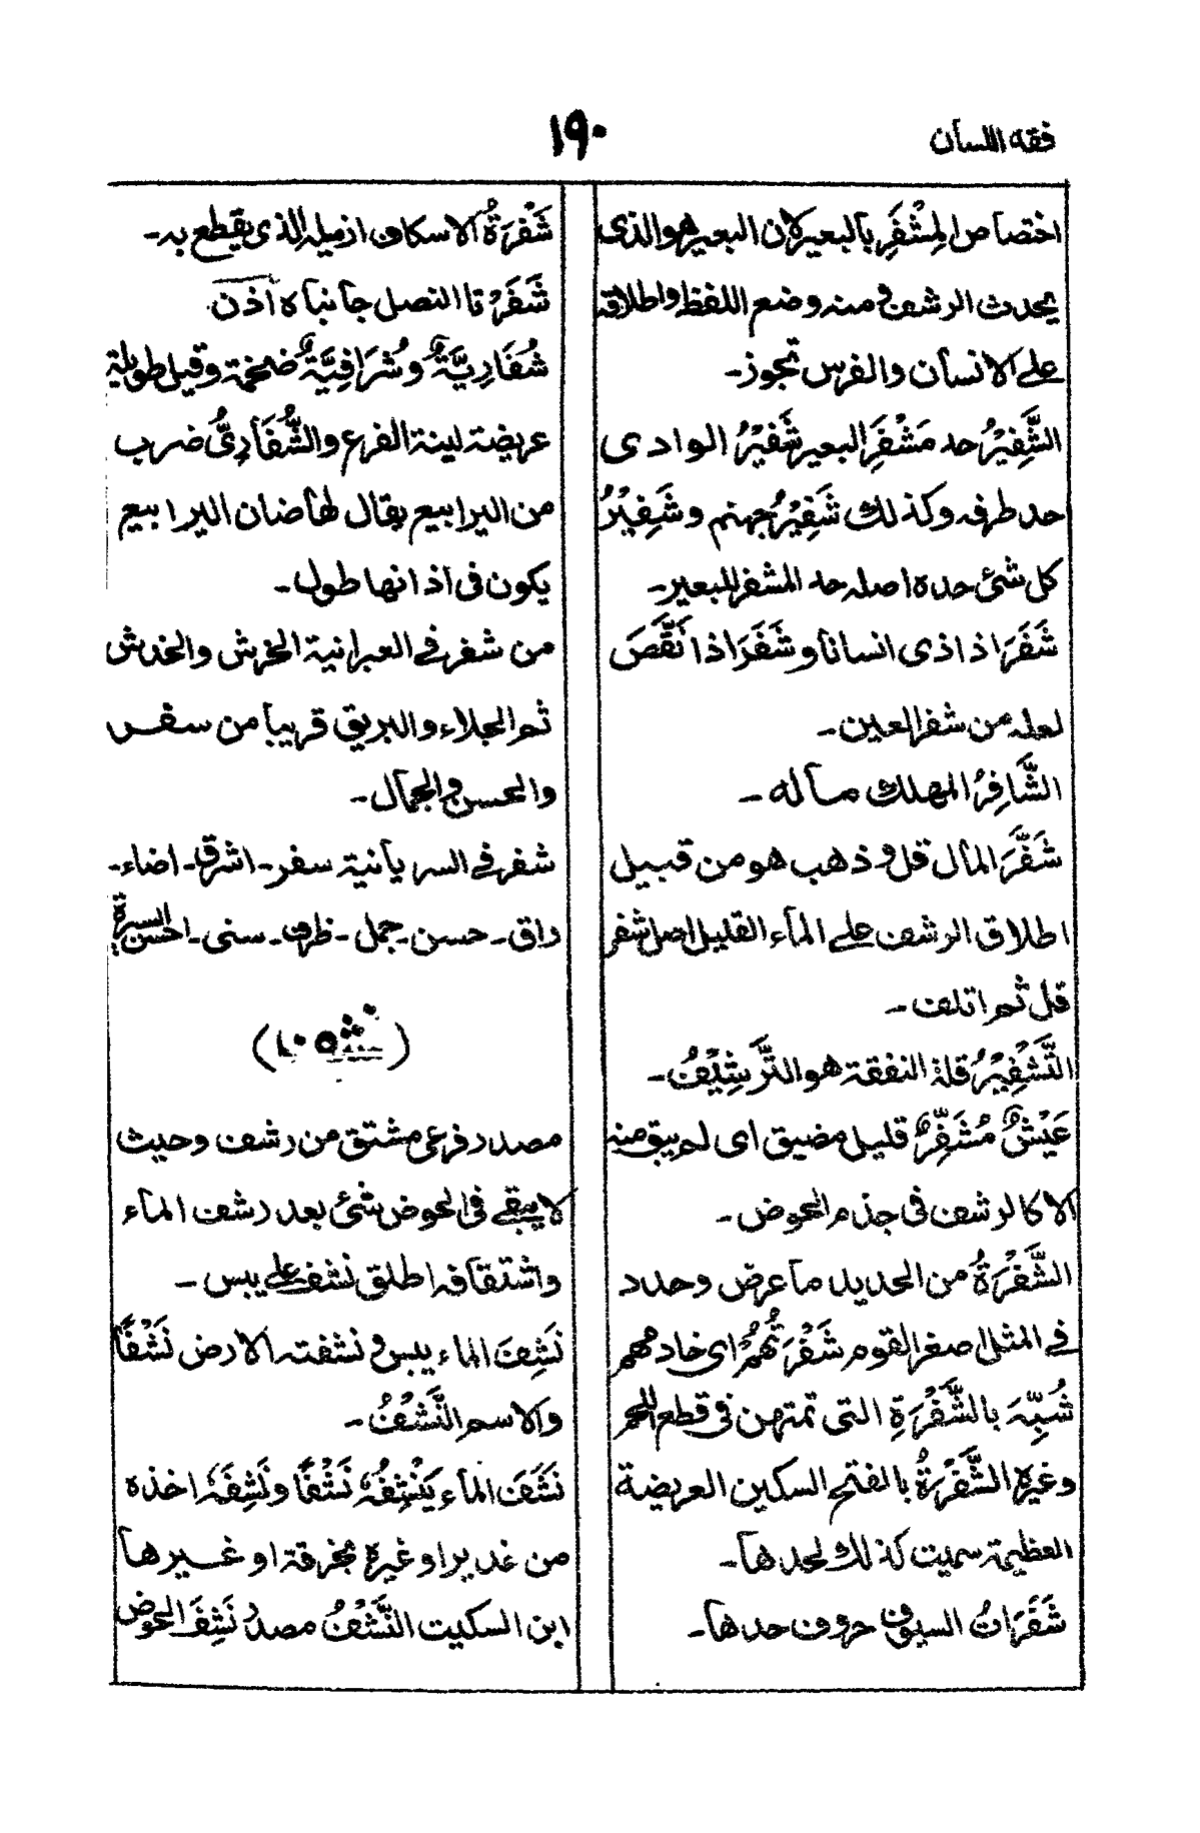 فقه اللسان
١٩٠
اختصاص المِشْفَرِ بالبعير لان البعير هو الذى
يحدث الرشف فمنه وضع اللفظ واطلاقه
على الانسان والفرس تجوز۔
الشَّفِيْرُ حد مَشْفَرِ البعير شَفِيْرُ الوادى
حد طرفه وكذلك شَفِيْرُ جهنم وشَفِيْرُ
كل شئ حده اصله حد المشفر للبعير۔
شَفَرَ اذا اذى انسانا وشَفَرَ اذا نَقَّصَ
لعله من شفر العين۔
الشَّافِرُ المهلك ماله۔
شَفَّرَ المال قل وذهب هو من قبيل
اطلاق الرشف على الماء القليل اصل شفر
قل ثم اتلف۔
التَّشْفِيْرُ قلة النفقة هو التَّرْشِيْفُ۔
عَيْشٌ مُشَفِّرٌ قليل مضيق اى لم يبق منه
الا كالرشف فى جذم الحوض۔
الشَّفْرَةُ من الحديد ما عرض وحدد
فى المثل صغر القوم شَفْرَتُهُمْ اى خادمهم
شُبِّهَ بالشَّفْرَةِ التى تمتهن فى قطع اللحم
وغيره الشَّفْرَةُ بالفتح السكين العريضة
العظيمة سميت كذلك لحدها۔
شَفَرَاتُ السيوف حروف حدها۔
شَفْرَةُ الاسكاف ازميله الذى يقطع به۔
شَفَرْتا النصل جانباه اذن
شُفَارِيَّةٌ وشُرَافِيَّةٌ ضخمة وقيل طويلة
عريضة لينة الفرع والشُّفَارِىُّ ضرب
من اليرابيع يقال لها ضان اليرابيع
يكون فى اذانها طول۔
من شفر فى العبرانية الخرش والخدش
ثم الجلاء والبريق قريبا من سفر
والحسن والجمال۔
شفر فى السريانية سفر۔ اشرق۔ اضاء۔
راق۔ حسن۔ جمل۔ ظرف۔ سنى۔ احسن السيرة
مصدر فرعى مشتق من رشف وحيث
لا يبقى فى الحوض شئ بعد رشف الماء
واشتقافه اطلق نشف على يبس۔
نَشِفَ الماء يبس ونشفته الارض نَشْفًا
والاسم النَّشْفُ۔
نَشَفَ الماء يَنْشِفُهُ نَشْفًا ونَشِفَهُ اخذه
من غدير او غيره بخرقة او غيرها
ابن السكيت النَّشْفُ مصدر نَشِفَ الحوض